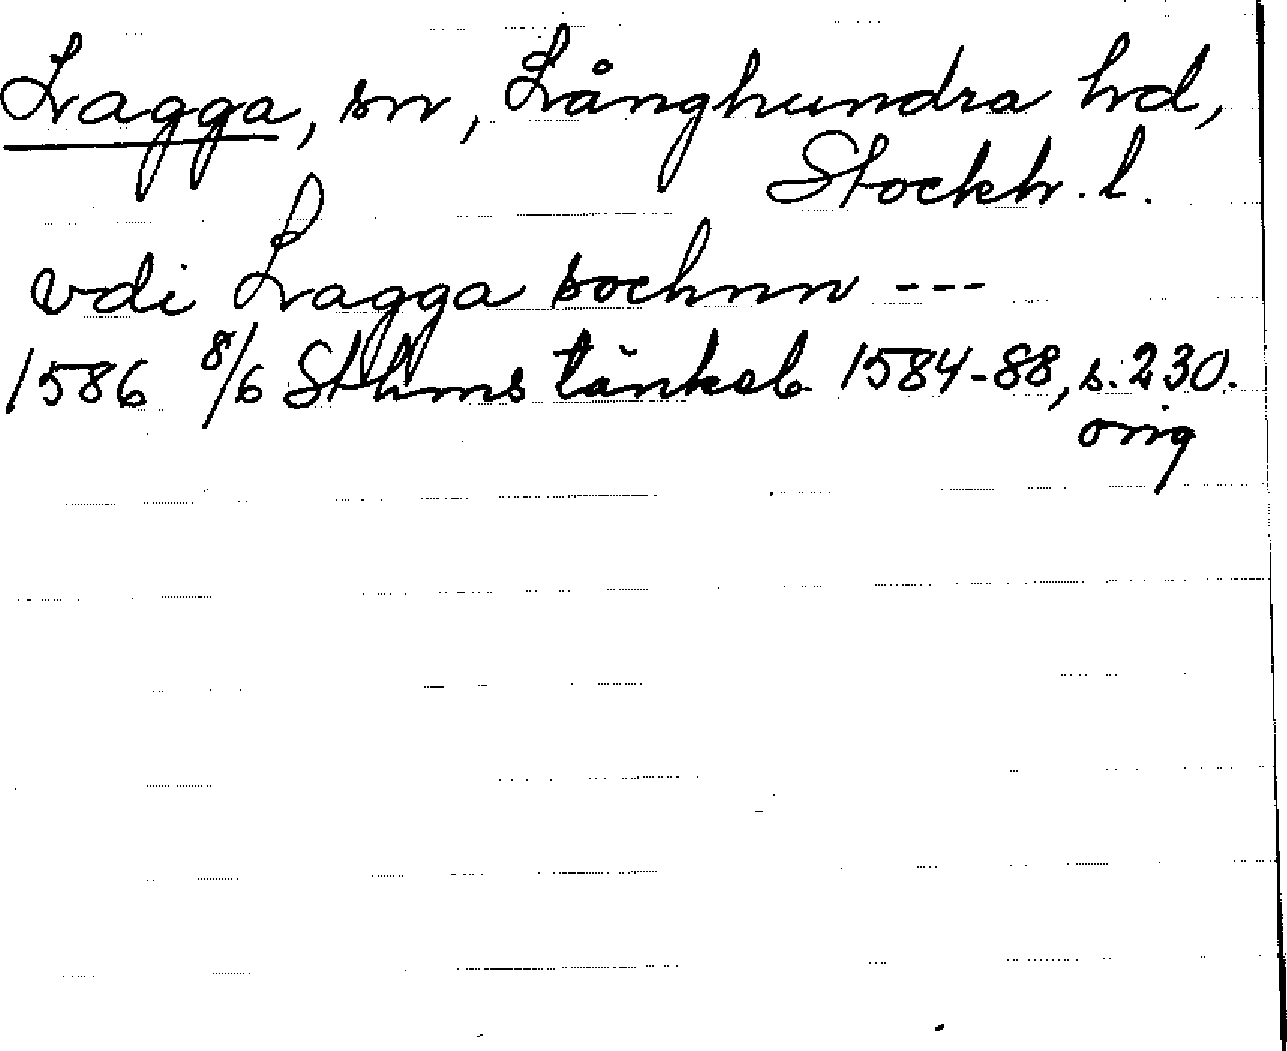 Lagga, sn, Långhundra hd,
Stockh. l.
vdi Lagga sochnn ---
1586 8/6 Sthms tänkeb. 1584-88, s. 230.
orig